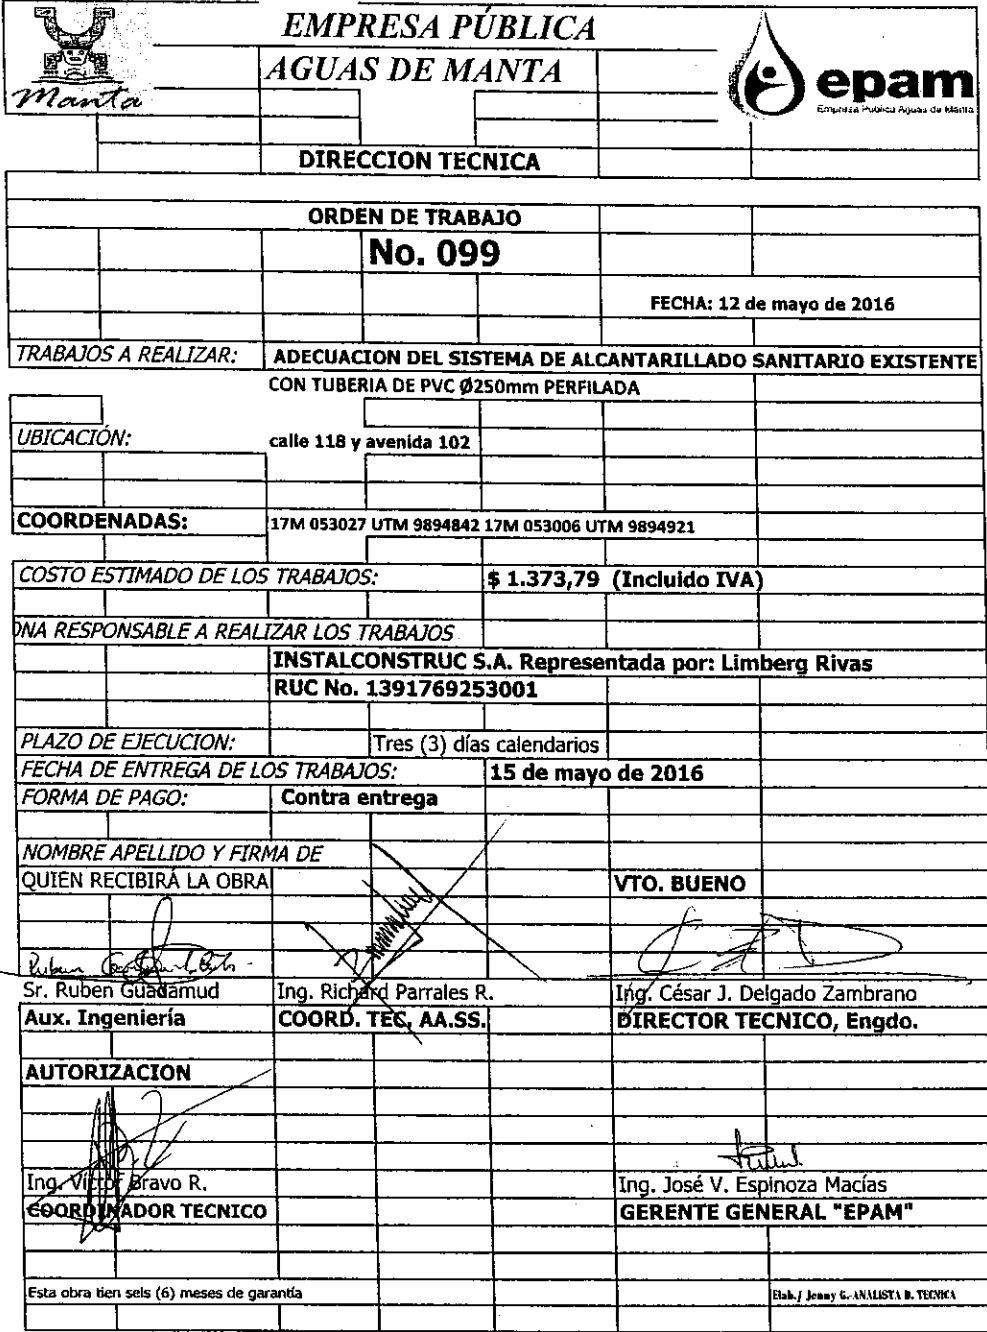 EMPRESA PÚBLICA
AGUAS DE MANTA
Manta
epam
Empresa Pública Aguas de Manta
DIRECCION TECNICA
ORDEN DE TRABAJO
No. 099
FECHA: 12 de mayo de 2016
TRABAJOS A REALIZAR: ADECUACION DEL SISTEMA DE ALCANTARILLADO SANITARIO EXISTENTE
CON TUBERIA DE PVC Ø250mm PERFILADA
UBICACIÓN: calle 118 y avenida 102
COORDENADAS: 17M 053027 UTM 9894842 17M 053006 UTM 9894921
COSTO ESTIMADO DE LOS TRABAJOS: $ 1.373,79 (Incluido IVA)
ONA RESPONSABLE A REALIZAR LOS TRABAJOS
INSTALCONSTRUC S.A. Representada por: Limberg Rivas
RUC No. 1391769253001
PLAZO DE EJECUCION: Tres (3) días calendarios
FECHA DE ENTREGA DE LOS TRABAJOS: 15 de mayo de 2016
FORMA DE PAGO: Contra entrega
NOMBRE APELLIDO Y FIRMA DE
QUIEN RECIBIRÁ LA OBRA VTO. BUENO
Sr. Ruben Guadamud Ing. Richard Parrales R. Ing. César J. Delgado Zambrano
Aux. Ingeniería COORD. TEC, AA.SS. DIRECTOR TECNICO, Engdo.
AUTORIZACION
Ing. Victor Bravo R. Ing. José V. Espinoza Macías
COORDINADOR TECNICO GERENTE GENERAL "EPAM"
Esta obra tien seis (6) meses de garantía Elab./ Jenny G.-ANALISTA D. TECNICA